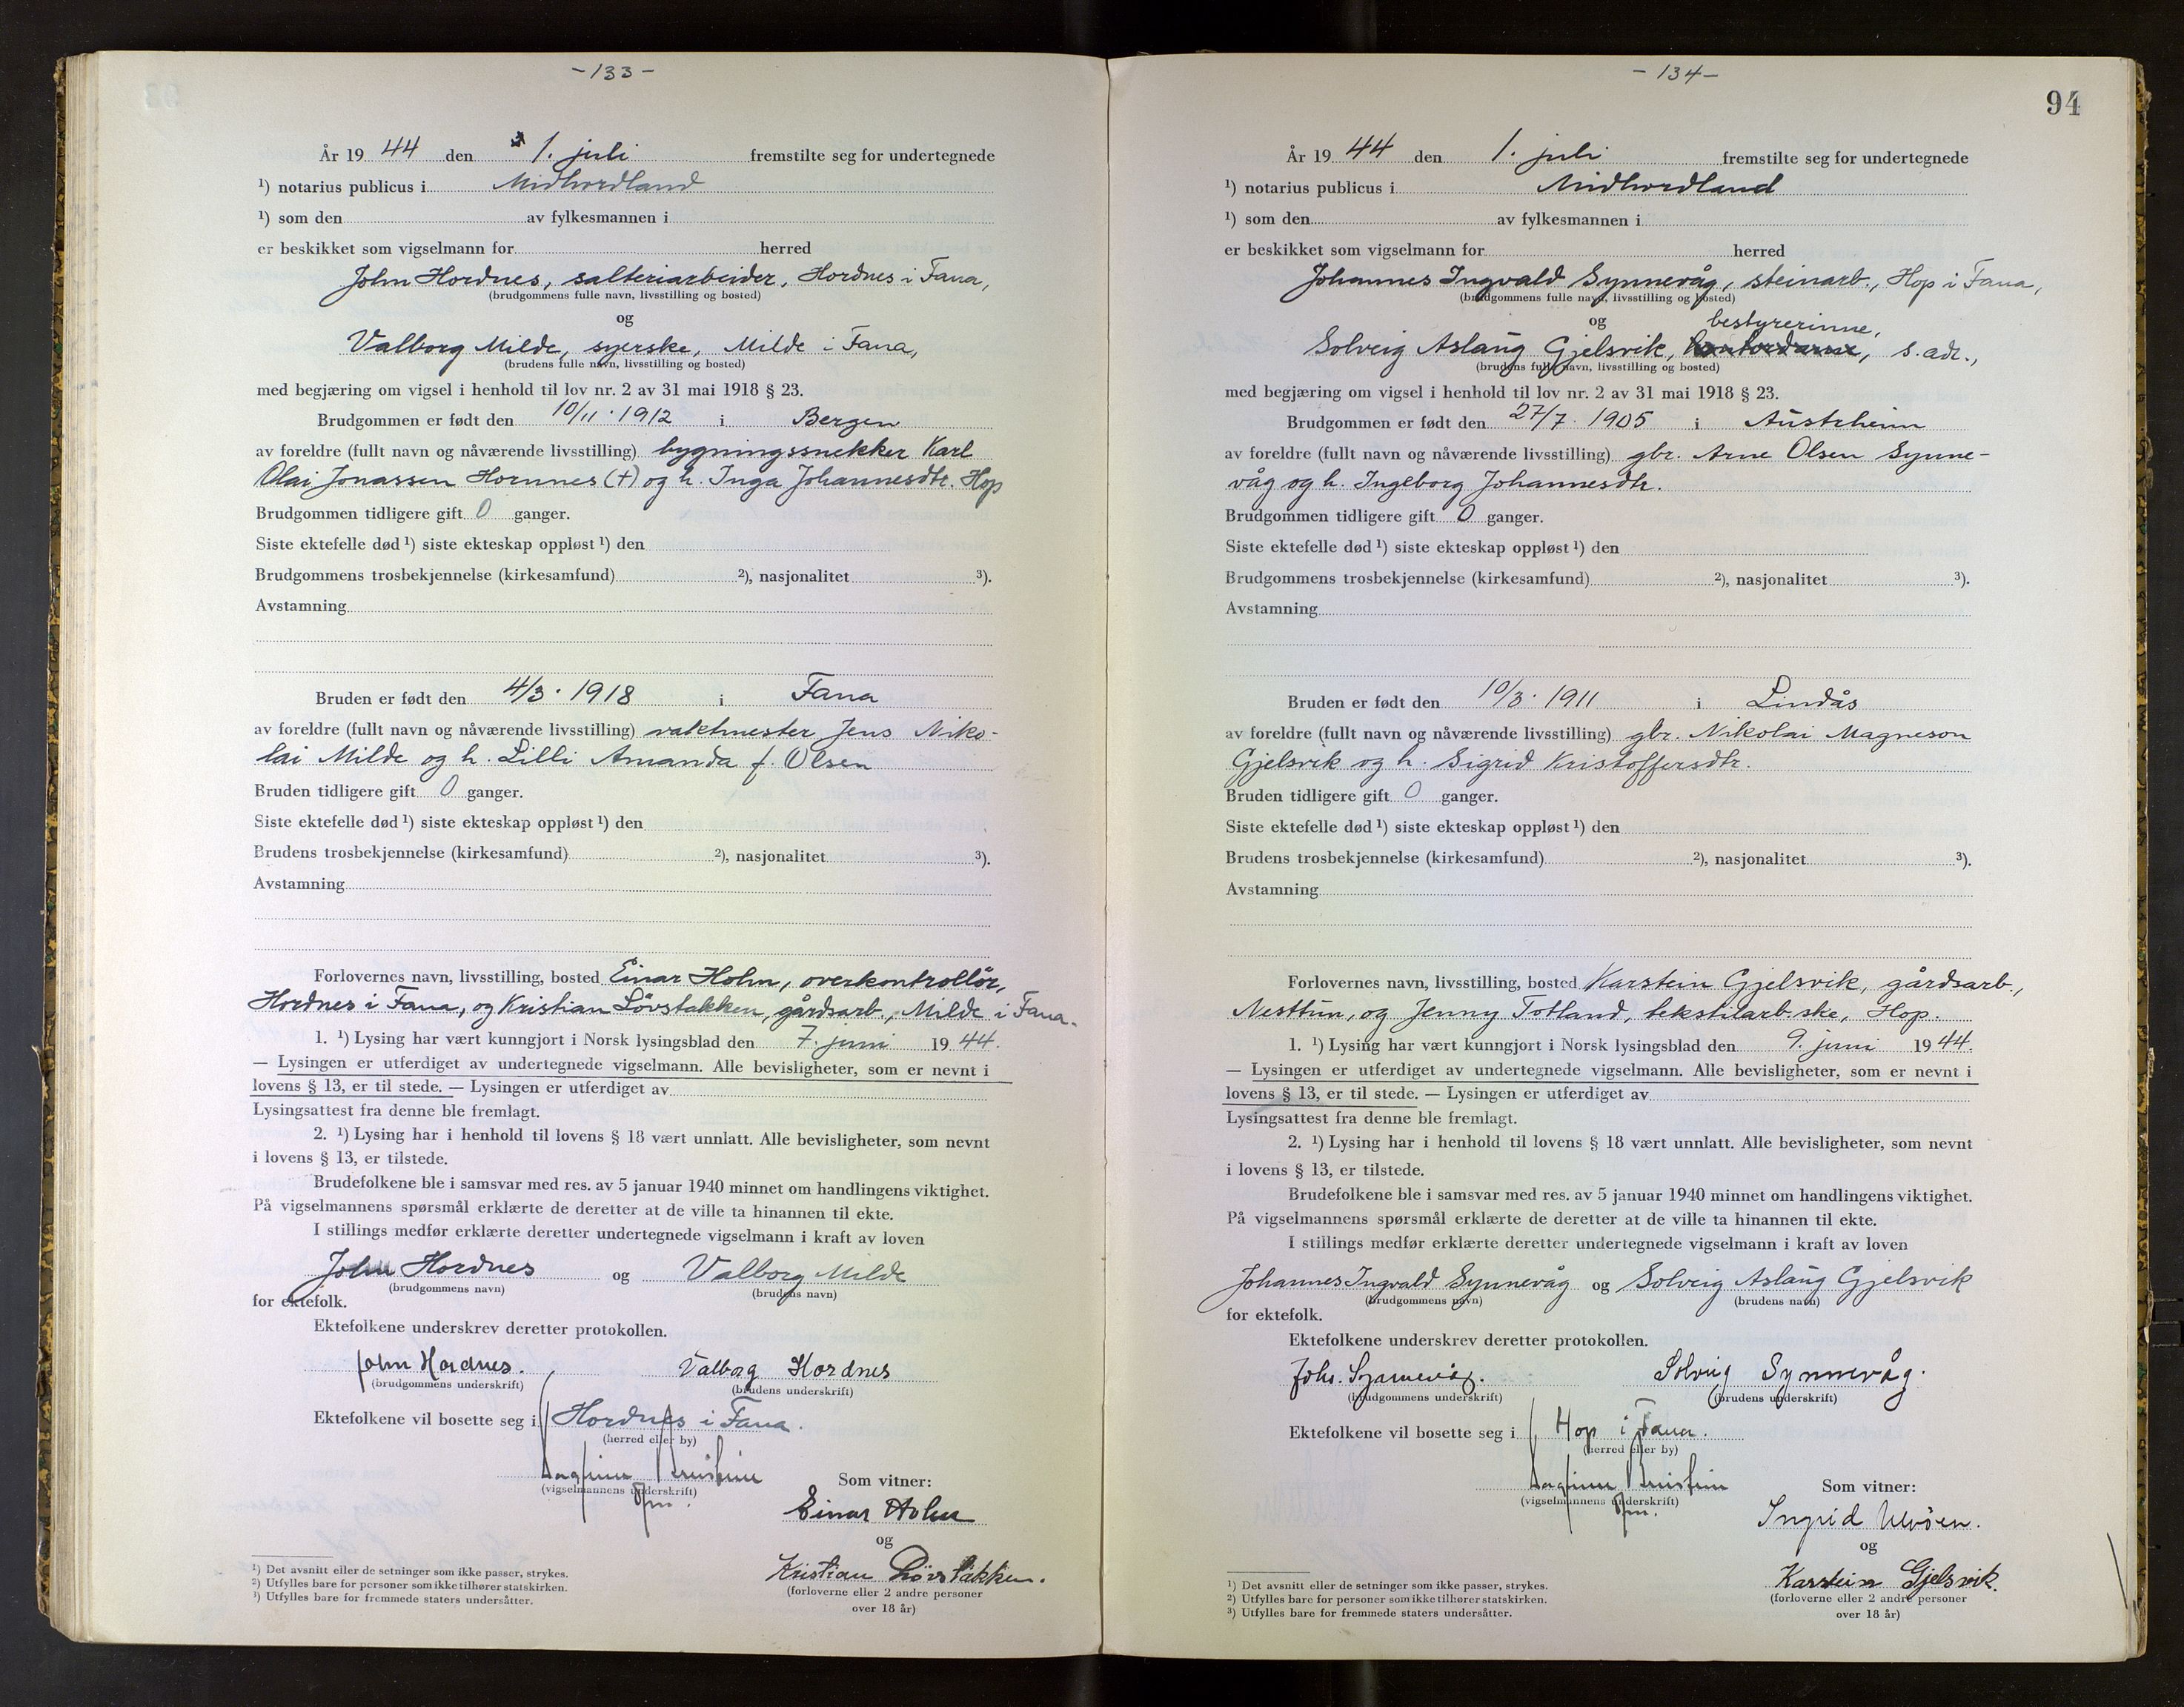 -133-
År 19 44 den 1. juli fremstilte seg for undertegnede
¹) notarius publicus i Midhordland
¹) som den av fylkesmannen i
er beskikket som vigselmann for herred
John Hordnes, salteriarbeider, Hordnes i Fana,
(brudgommens fulle navn, livsstilling og bosted)
og
Valborg Milde, syerske, Milde i Fana,
(brudens fulle navn, livsstilling og bosted)
med begjæring om vigsel i henhold til lov nr. 2 av 31 mai 1918 § 23.
Brudgommen er født den 10/11. 1912 i Bergen
av foreldre (fullt navn og nåværende livsstilling) bygningssnekker Karl
Olai Jonassen Hornnes (+) og h. Inga Johannesdtr. Hop
Brudgommen tidligere gift 0 ganger.
Siste ektefelle død ¹) siste ekteskap oppløst ¹) den
Brudgommens trosbekjennelse (kirkesamfund) ²), nasjonalitet ³).
Avstamning
Bruden er født den 4/3. 1918 i Fana
av foreldre (fullt navn og nåværende livsstilling) vaktmester Jens Niko-
lai Milde og h. Lilli Amanda f. Olsen
Bruden tidligere gift 0 ganger.
Siste ektefelle død ¹) siste ekteskap oppløst ¹) den
Brudens trosbekjennelse (kirkesamfund) ²), nasjonalitet ³).
Avstamning
Forlovernes navn, livsstilling, bosted Einar Holm, overkontrollör,
Hordnes i Fana, og Kristian Lövstakken, gårdsarb., Milde i Fana.
1. ¹) Lysing har vært kunngjort i Norsk lysingsblad den 7. juni 19 44.
— Lysingen er utferdiget av undertegnede vigselmann. Alle bevisligheter, som er nevnt i
lovens § 13, er til stede. — Lysingen er utferdiget av
Lysingsattest fra denne ble fremlagt.
2. ¹) Lysing har i henhold til lovens § 18 vært unnlatt. Alle bevisligheter, som nevnt
i lovens § 13, er tilstede.
Brudefolkene ble i samsvar med res. av 5 januar 1940 minnet om handlingens viktighet.
På vigselmannens spørsmål erklærte de deretter at de ville ta hinannen til ekte.
I stillings medfør erklærte deretter undertegnede vigselmann i kraft av loven
John Hordnes og Valborg Milde
(brudgommens navn) (brudens navn)
for ektefolk.
Ektefolkene underskrev deretter protokollen.
John Hordnes. Valborg Hordnes
(brudgommens underskrift) (brudens underskrift)
Ektefolkene vil bosette seg i Hordnes i Fana.
(herred eller by)
(vigselmannens underskrift)
Som vitner:
Einar Holm
og
Kristian Lövstakken.
(forloverne eller 2 andre personer
over 18 år)
¹) Det avsnitt eller de setninger som ikke passer, strykes.
²) Utfylles bare for personer som ikke tilhører statskirken.
³) Utfylles bare for fremmede staters undersåtter.
-134-
94
År 19 44 den 1. juli fremstilte seg for undertegnede
¹) notarius publicus i Midhordland
¹) som den av fylkesmannen i
er beskikket som vigselmann for herred
Johannes Ingvald Synnevåg, steinarb., Hop i Fana,
(brudgommens fulle navn, livsstilling og bosted)
og bestyrerinne,
Solveig Aslaug Gjelsvik, s. adr.,
(brudens fulle navn, livsstilling og bosted)
med begjæring om vigsel i henhold til lov nr. 2 av 31 mai 1918 § 23.
Brudgommen er født den 27/7. 1905 i Austrheim
av foreldre (fullt navn og nåværende livsstilling) gbr. Arne Olsen Synne-
våg og h. Ingeborg Johannesdtr.
Brudgommen tidligere gift 0 ganger.
Siste ektefelle død ¹) siste ekteskap oppløst ¹) den
Brudgommens trosbekjennelse (kirkesamfund) ²), nasjonalitet ³).
Avstamning
Bruden er født den 10/3. 1911 i Lindås
av foreldre (fullt navn og nåværende livsstilling) gbr. Nikolai Magneson
Gjelsvik og h. Sigrid Kristoffersdtr.
Bruden tidligere gift 0 ganger.
Siste ektefelle død ¹) siste ekteskap oppløst ¹) den
Brudens trosbekjennelse (kirkesamfund) ²), nasjonalitet ³).
Avstamning
Forlovernes navn, livsstilling, bosted Karstein Gjelsvik, gårdsarb.,
Nesttun, og Jenny Totland, tekstilarb.ske, Hop.
1. ¹) Lysing har vært kunngjort i Norsk lysingsblad den 9. juni 19 44.
— Lysingen er utferdiget av undertegnede vigselmann. Alle bevisligheter, som er nevnt i
lovens § 13, er til stede. — Lysingen er utferdiget av
Lysingsattest fra denne ble fremlagt.
2. ¹) Lysing har i henhold til lovens § 18 vært unnlatt. Alle bevisligheter, som nevnt
i lovens § 13, er tilstede.
Brudefolkene ble i samsvar med res. av 5 januar 1940 minnet om handlingens viktighet.
På vigselmannens spørsmål erklærte de deretter at de ville ta hinannen til ekte.
I stillings medfør erklærte deretter undertegnede vigselmann i kraft av loven
Johannes Ingvald Synnevåg og Solveig Aslaug Gjelsvik
(brudgommens navn) (brudens navn)
for ektefolk.
Ektefolkene underskrev deretter protokollen.
Johs. Synnevåg. Solveig Synnevåg.
(brudgommens underskrift) (brudens underskrift)
Ektefolkene vil bosette seg i Hop i Fana.
(herred eller by)
(vigselmannens underskrift)
Som vitner:
Ingrid Ulvöen.
og
Karstein Gjelsvik.
(forloverne eller 2 andre personer
over 18 år)
¹) Det avsnitt eller de setninger som ikke passer, strykes.
²) Utfylles bare for personer som ikke tilhører statskirken.
³) Utfylles bare for fremmede staters undersåtter.